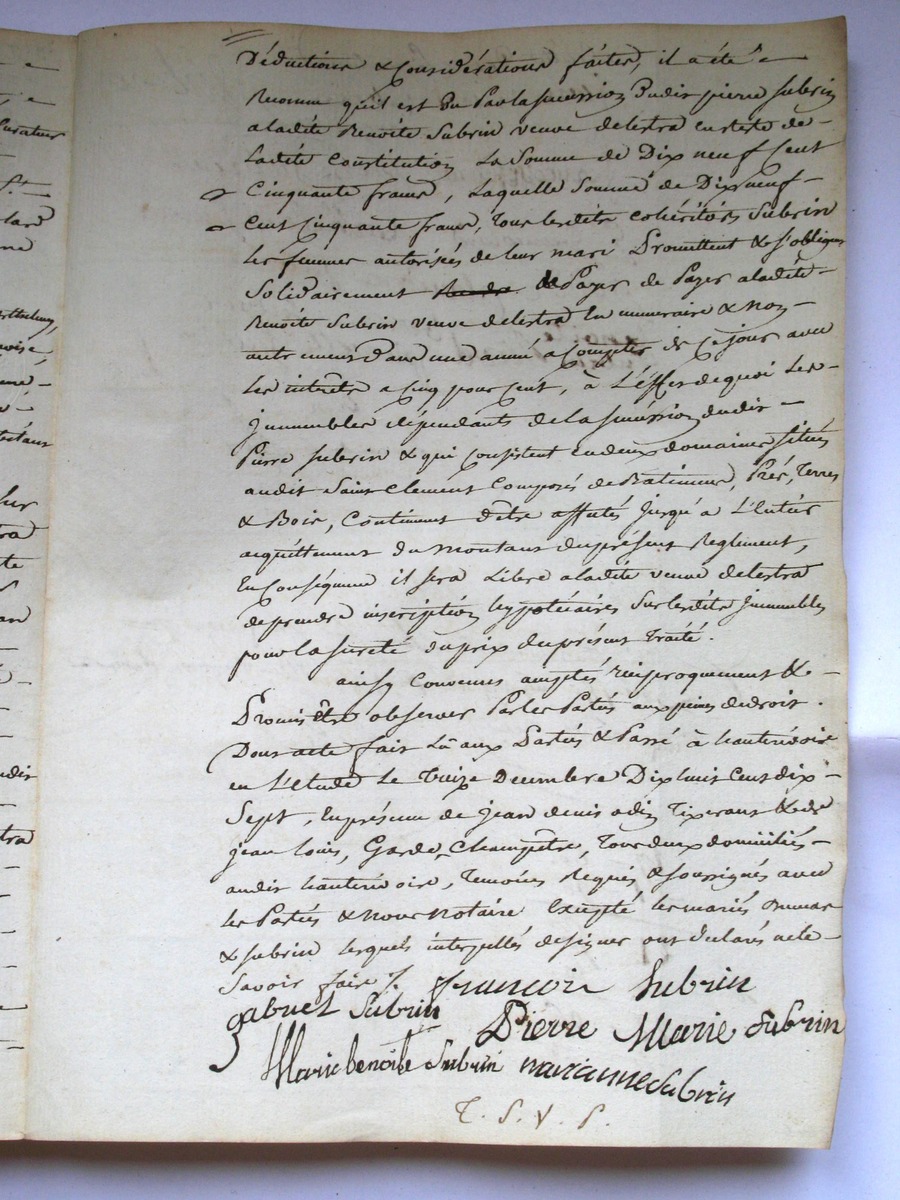 Déductions & Considérations faites, il a été
Reconnu qu'il est Du Par la succession dudit pierre subrin
a ladite Benoite Subrin veuve delestra en reste de
Ladite Constitution La Somme de Dix neuf Cent
Cinquante francs, Laquelle Somme de Dix neuf
Cent Cinquante francs, Tous lesdits cohéritiers Subrin
les femmes autorisées de leur mari Promettent & s'obligent
Solidairement de Payer de Payer a ladite
Benoite Subrin veuve delestra En numeraire & non
autrement Dans une année a Compter de Ce jour avec
Les interets a Cinq pour Cent, à L'effet de quoi Les
immeubles dépendants de la succession dudit
Pierre subrin & qui Consistent en deux domaines situés
audit Saint Clement Composés de Batimens, Prés, Terres
& Bois, Continuent d'etre affectés jusqu'à L'entier
acquittement du montant du présent Reglement,
En Conséquence il sera Libre a ladite veuve delestra
de prendre inscription hypotécaires Sur lesdits immeubles
pour la sureté du prix du présent Traité.
ainsy Convenus acceptés réciproquement &
Promis être observer Par les Parties aux peines de droit.
Dont acte fait Lû aux Parties & Passé à hauterivoire
en L'etude Le Treize Decembre Dix huit Cent dix
Sept, En présence de jean denis Tixerant & de
jean louis, Garde Champêtre, Tous deux domiciliés
audit hauterivoire, Temoins Requis & soussignés avec
les Parties & nous notaire Excepté les mariés
& subrin lesquels interpellés de signer ont déclarés ne le
Savoir faire ./.
françois subrin
gabriel subrin
Pierre Marie subrin
Marie benoite subrin marianne subrin
T. S. V. P.